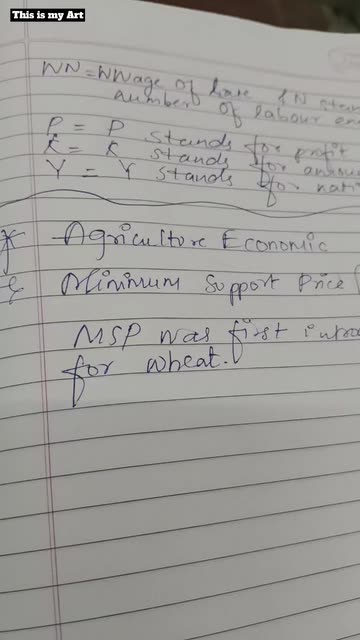 This is my Art
WN = WWage of
number of labour
P = P stands for profit
R = R stands for
Y = Y stands for
Agriculture Economic
Minimum Support Price
MSP was first
for wheat.